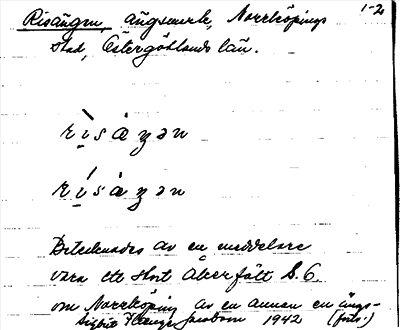 Risängen, ängsmark, Norrköpings 1-2
stad, Östergötlands län.
rìsàŋən
rísàŋən
Betecknades av en meddelare
vara ett stort åkerfält S. 6.
om Norrköping av en annan en ängs-
Jacobson 1942 (forts.)